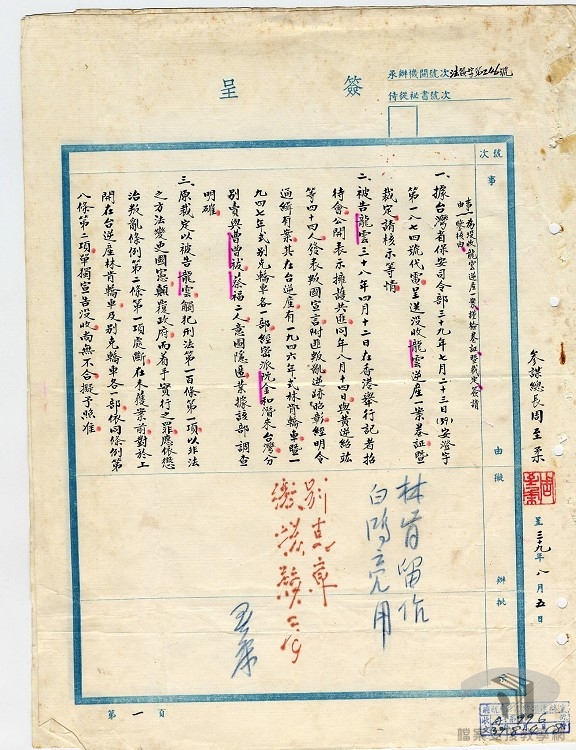 簽呈
承辦機關號次
侍從祕書號次
號次
事由
擬辦
批示
事由：為沒收龍雲逆產一案檢卷證暨裁定簽請鑒核由
一、據台灣省保安司令部三十九年七月二十三日(39)安澄字
第一八七四號代電呈送沒收龍雲逆產一案卷証暨
裁定請核示等情
二、被告龍雲三十八年四月十二日在香港舉行記者招
待會公開表示擁護共匪同年八月十四日與黃逆紹竑
等四十四人發表叛國宣言附匪叛亂逆跡昭彰經明令
通緝有案其在台逆產有一九四六年式林肯轎車暨一
九四七年式別克轎車各一部經密派沈全和潛來台灣分
別賣與曹曾祓蔡福二人意圖隱匿業據該部調查
明確
三、原裁定以被告龍雲觸犯刑法第一百條第一項以非法
之方法變更國憲顛覆政府而着手實行之罪應依懲
治叛亂條例第二條第一項處斷在未獲案前對於上
開在台逆產林肯轎車及別克轎車各一部依同條例第
八條第二項單獨宣告沒收尚無不合擬予照准
參謀總長周至柔
呈 三十九年 八月 五日
林肯留作
白鴻亮用
別克
至柔
第一頁
檔案支援教學網